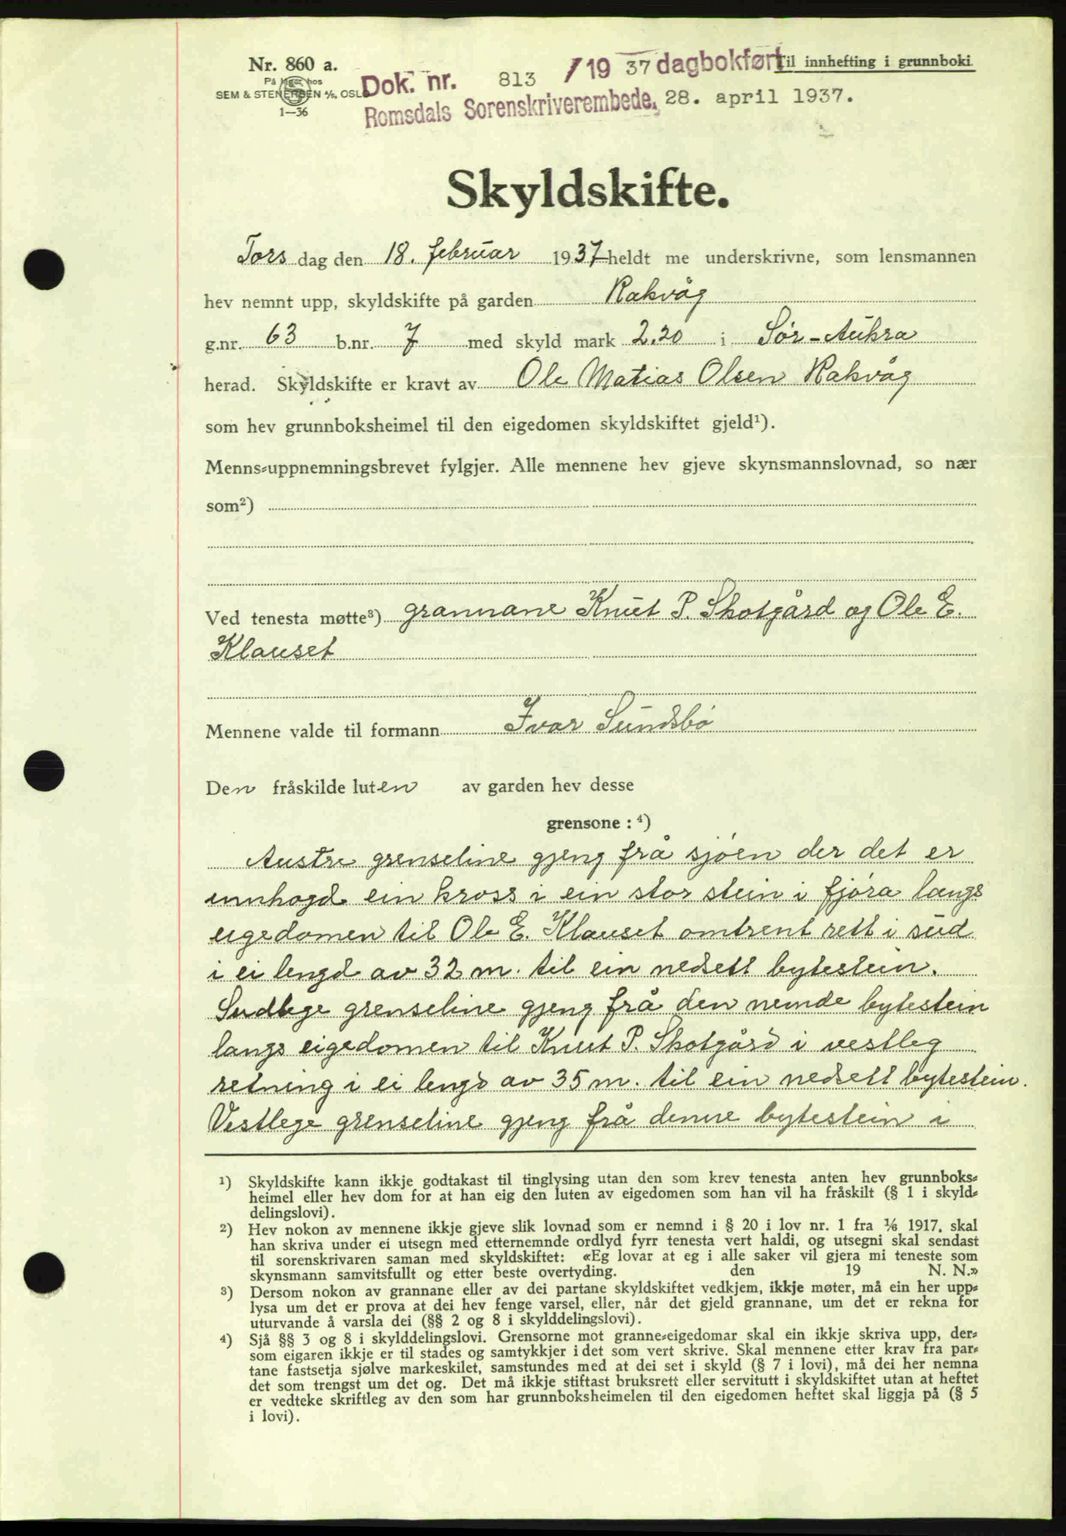 Nr. 860 a.
På lager hos
SEM & STENERSEN A/S, OSLO
1—36
Dok. nr. 813 / 19 37 dagbokført
Til innhefting i grunnboki
Romsdals Sorenskriverembede, 28. april 1937.
Skyldskifte.
Tors dag den 18. februar 1937 heldt me underskrivne, som lensmannen
hev nemnt upp, skyldskifte på garden Rakvåg
g.nr. 63 b.nr. 7 med skyld mark 2.20 i Sør-Aukra
herad. Skyldskifte er kravt av Ole Matias Olsen Rakvåg
som hev grunnboksheimel til den eigedomen skyldskiftet gjeld¹).
Menns-uppnemningsbrevet fylgjer. Alle mennene hev gjeve skynsmannslovnad, so nær
som²)
Ved tenesta møtte³) grannane Knut P. Skotgård og Ole E.
Klauset
Mennene valde til formann Ivar Sundsbø
Den fråskilde luten av garden hev desse
grensone : ⁴)
Austre grenseline gjeng frå sjøen der det er
innhogd ein kross i ein stor stein i fjøra langs
eigedomen til Ole E. Klauset omtrent rett i sud
i ei lengd av 32 m. til ein nedsett bytestein.
Sudlege grenseline gjeng frå den nemde bytestein
langs eigedomen til Knut P. Skotgård i vestleg
retning i ei lengd av 35 m. til ein nedsett bytestein.
Vestlege grenseline gjeng frå denne bytestein i
¹) Skyldskifte kann ikkje godtakast til tinglysing utan den som krev tenesta anten hev grunnboks-
heimel eller hev dom for at han eig den luten av eigedomen som han vil ha fråskilt (§ 1 i skyld-
delingslovi).
²) Hev nokon av mennene ikkje gjeve slik lovnad som er nemnd i § 20 i lov nr. 1 fra 1/6 1917, skal
han skriva under ei utsegn med etternemnde ordlyd fyrr tenesta vert haldi, og utsegni skal sendast
til sorenskrivaren saman med skyldskiftet: «Eg lovar at eg i alle saker vil gjera mi teneste som
skynsmann samvitsfullt og etter beste overtyding. den 19 N. N.»
³) Dersom nokon av grannane eller av dei partane skyldskiftet vedkjem, ikkje møter, må ein her upp-
lysa um det er prova at dei hev fenge varsel, eller, når det gjeld grannane, um det er rekna for
uturvande å varsla dei (§§ 2 og 8 i skylddelingslovi).
⁴) Sjå §§ 3 og 8 i skylddelingslovi. Grensorne mot granne-eigedomar skal ein ikkje skriva upp, der-
som eigaren ikkje er til stades og samtykkjer i det som vert skrive. Skal mennene etter krav fra par-
tane fastsetja sjølve markeskilet, samstundes med at dei set i skyld (§ 7 i lovi), må dei her nemna
det som trengst um det og. Det må ikkje stiftast bruksrett eller servitutt i skyldskiftet utan at heftet
er vedteke skriftleg av den som har grunnboksheimelen til den eigedomen heftet skal liggja på (§ 5
i lovi).